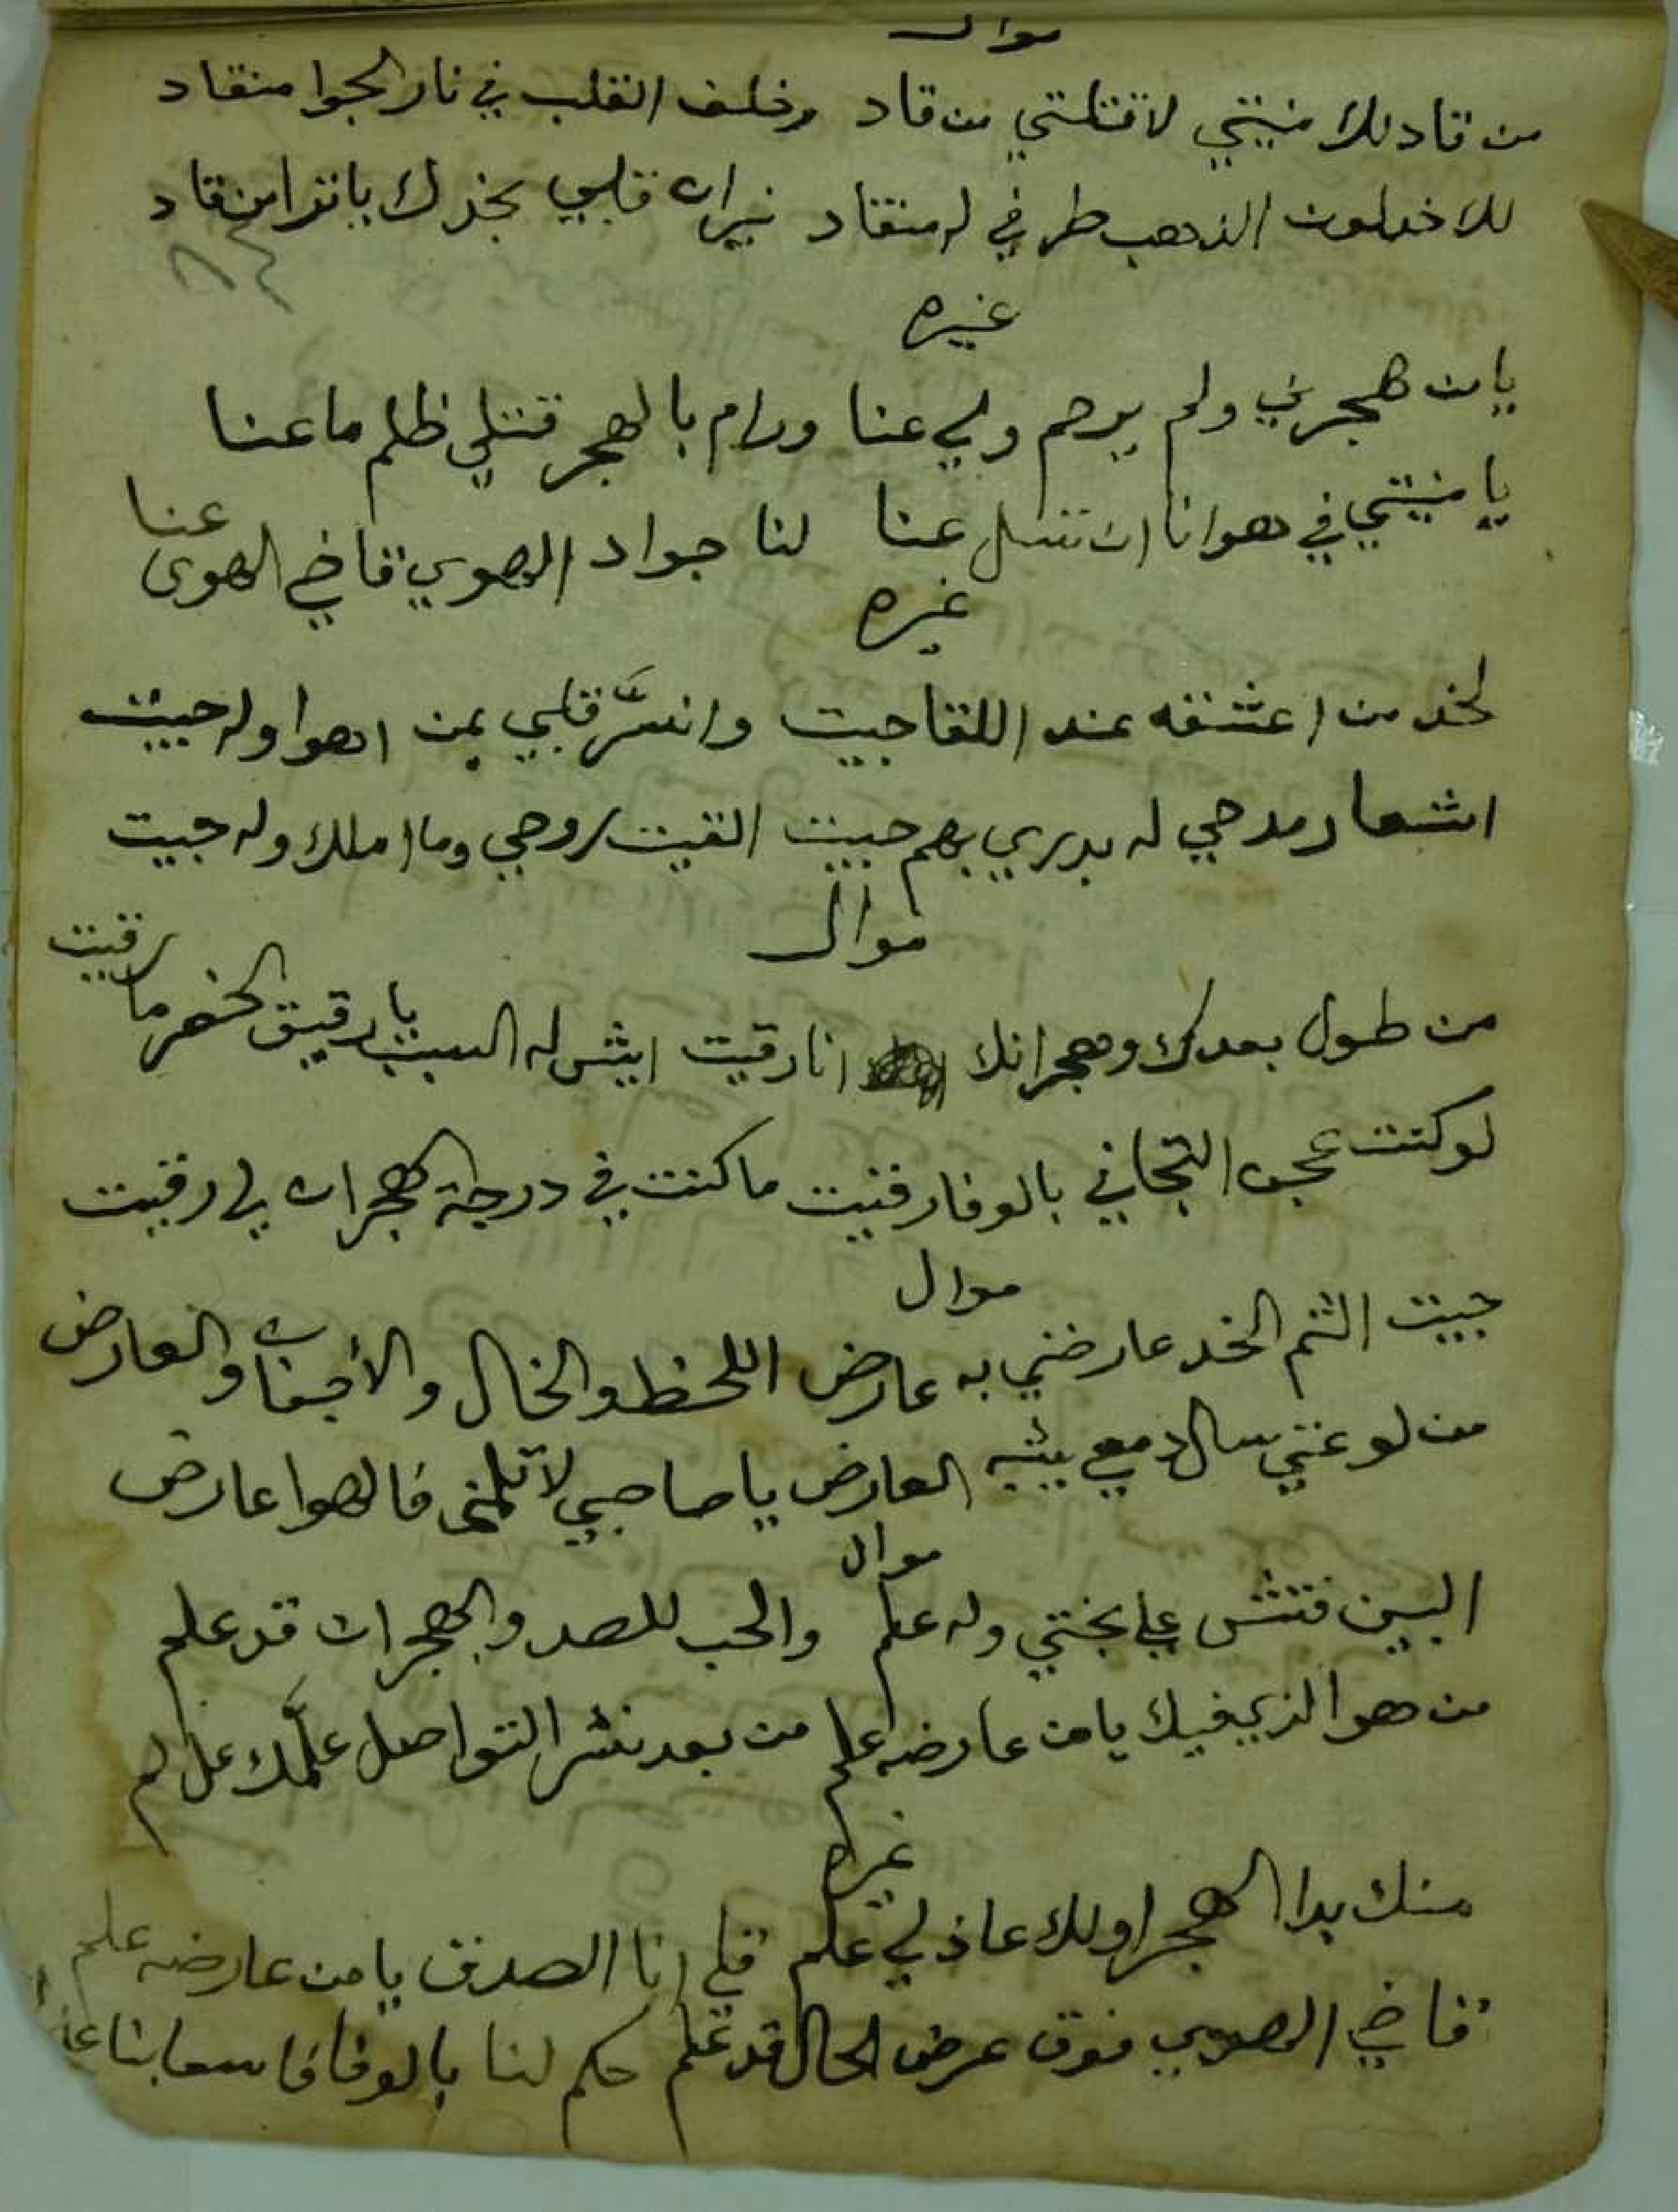 موال
من قادلك منيتي لا قتلتي من قاد وخلف القلب في نار الجوا منقاد
للاخد لون الذهب طرفي له منقاد نيران قلبي بخدك يا ترا من قاد
٨٤
غيره
يا من هجرني ولم يرحم ولي عنا ورام بالهجر قتلي ظلم ما عنا
يا منيتي في هوانا ان تسل عنا لنا جواد الهوي قاضي الهوى عنا
غيره
لخد من اعشقه عند اللقا جيت وانسرَّ قلبي بمن اهوا وله حبيت
اشعار مدحي له بدري بهم حبيت القيت روحي وما املك وله جبيت
موال
من طول بعدك وهجرانك انا رقيت ايش له السبب يا رقيق الخصر ما رقيت
لو كنت عجن التجافي بالوفا رقيت ما كنت في درجة الهجران لي رقيت
موال
جيت الثم الخد عارضني به عارض اللحظ والخال والأجفان والعارض
من لوعتي سال دمعي يشبه العارض يا صاحبي لا تلمني فالهوا عارض
موال
البين فتش على بختي وله علم والحب للصد والهجران قد علم
من هو الذي فيك يا من عارضه علم من بعد نشر التواصل علَّمك عل لم
غيره
منك بدا الهجر اولك عاذلي علم قلي انا الصدق يا من عارضه علم
قاضي الهوي فوق عرض الحال قد علم حكم لنا بالوفا فا سعا بنا